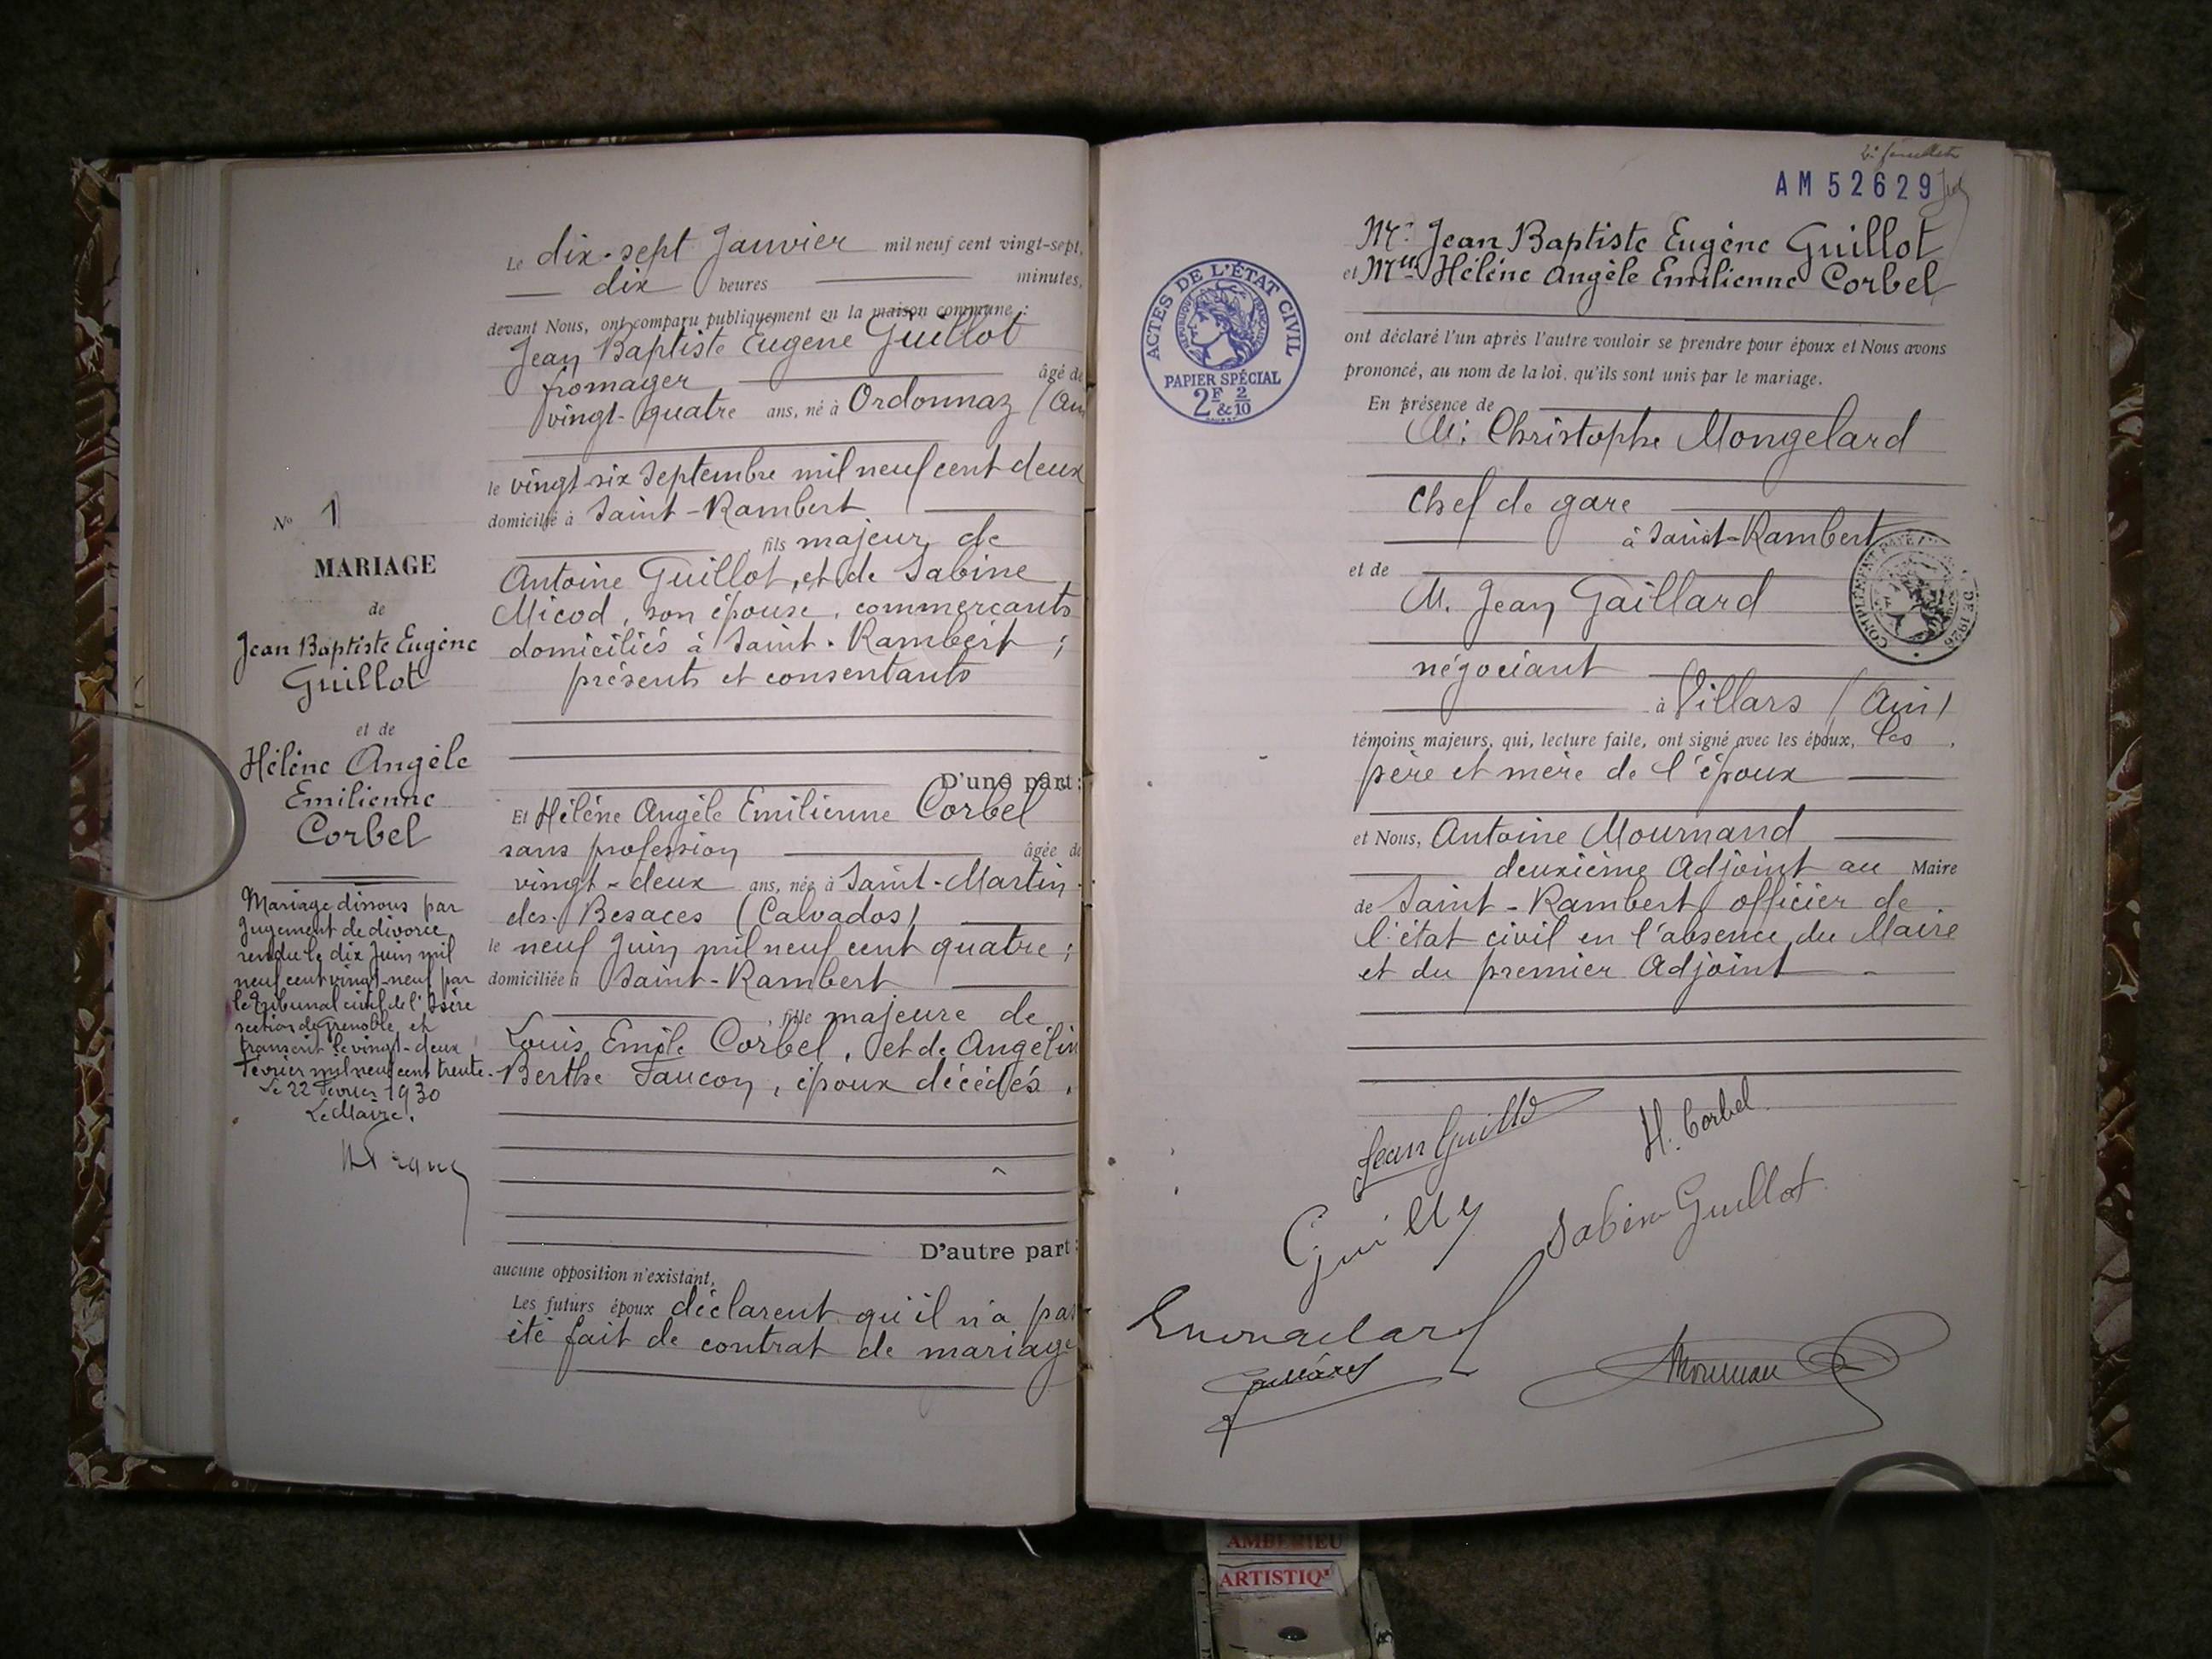 N° 1
MARIAGE
de
Jean Baptiste Eugène
Guillot
et de
Hélène Angèle
Emilienne
Corbel
Mariage dissous par
Jugement de divorce
rendu le dix Juin mil
neuf cent vingt-neuf par
le tribunal civil de l'Isère
section de Grenoble et
transcrit le vingt-deux
Février mil neuf cent trente.
Le 22 Février 1930
Le Maire.
Le dix-sept Janvier mil neuf cent vingt-sept,
dix heures minutes,
devant Nous, ont comparu publiquement en la maison commune :
Jean Baptiste Eugène Guillot
fromager âgé de
vingt-quatre ans, né à Ordonnaz (Ain
le vingt-six Septembre mil neuf cent deux
domicilié à Saint-Rambert
fils majeur de
Antoine Guillot, et de Sabine
Micod, son épouse, commerçants
domiciliés à Saint-Rambert ;
présents et consentants
D'une part :
Et Hélène Angèle Emilienne Corbel
sans profession âgée de
vingt-deux ans, née à Saint-Martin-
des-Besaces (Calvados)
le neuf Juin mil neuf cent quatre ;
domiciliée à Saint-Rambert
fille majeure de
Louis Emile Corbel, et de Angélin
Berthe Faucon, époux décédés.
D'autre part :
aucune opposition n'existant,
Les futurs époux déclarent qu'il n'a pas
été fait de contrat de mariage
2e feuillet
AM 52629
ACTES DE L'ÉTAT CIVIL
RÉPUBLIQUE FRANÇAISE
PAPIER SPÉCIAL
2F & 2/10
Mr Jean Baptiste Eugène Guillot
et Mlle Hélène Angèle Emilienne Corbel
ont déclaré l'un après l'autre vouloir se prendre pour époux et Nous avons
prononcé, au nom de la loi, qu'ils sont unis par le mariage.
En présence de
M. Christophe Mongelard
Chef de gare
à Saint-Rambert
COMPLÉMENT PAYÉ 1926
et de
M. Jean Gaillard
négociant
à Villars (Ain)
témoins majeurs, qui, lecture faite, ont signé avec les époux, les
père et mère de l'époux
et Nous, Antoine Mournand
deuxième Adjoint au Maire
de Saint-Rambert officier de
l'état civil en l'absence du Maire
et du premier Adjoint
Jean Guillot
H. Corbel
Sabine Guillot
AMBERIEU
ARTISTIQ